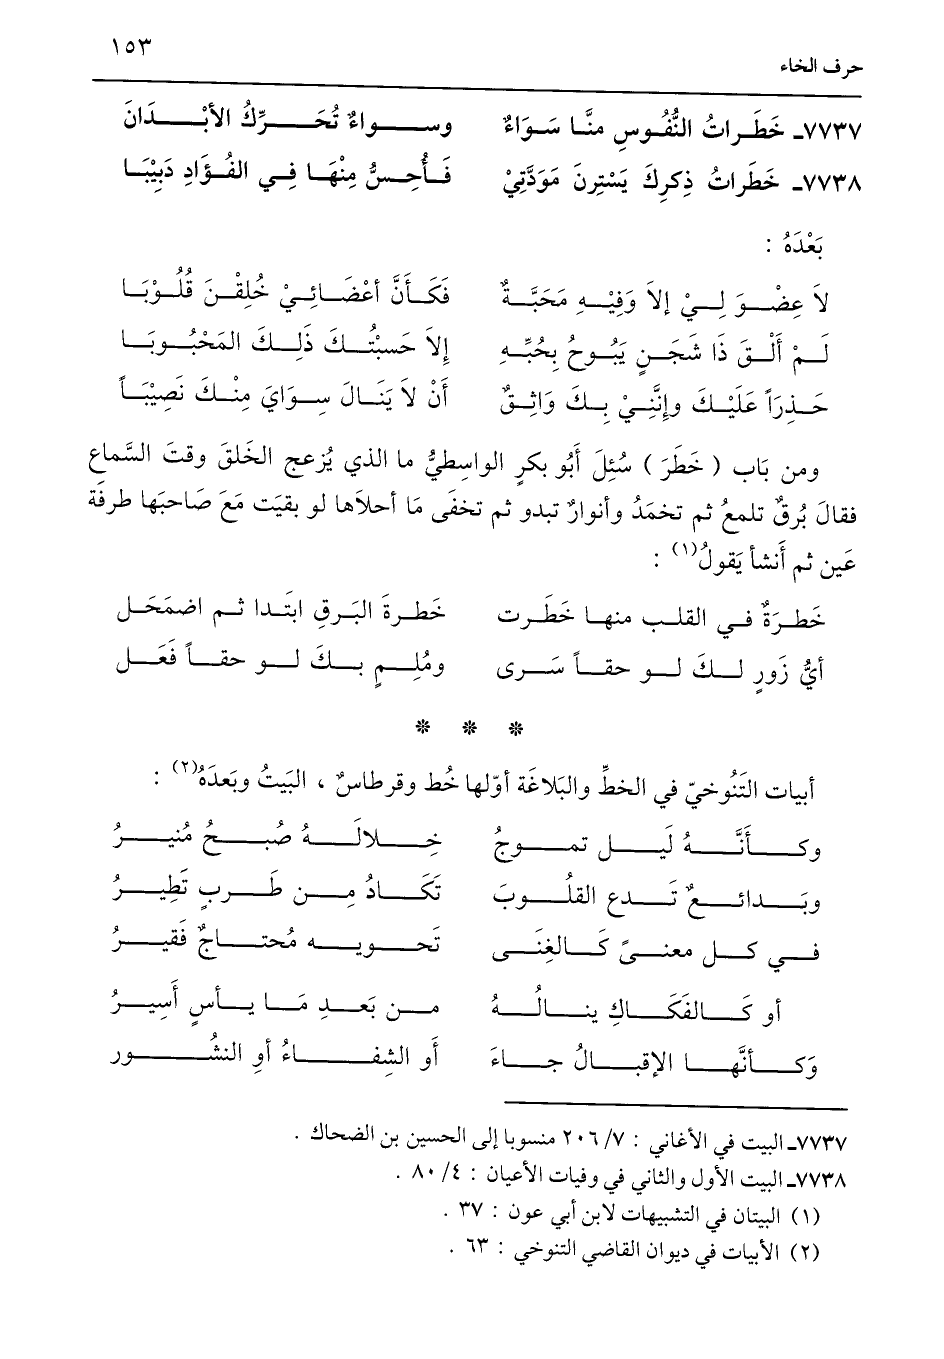 ١٥٣
حرف الخاء
٧٧٣٧ـ خَطَراتُ النُّفُوسِ منَّا سَوَاءٌ وسواءٌ تُحَرِّكُ الأبْدَانَ
٧٧٣٨ـ خَطَراتُ ذِكرِكَ يَسْتِرنَ مَوَدَّتِيْ فَأُحِسُّ مِنْهَا فِي الفُؤَادِ دَبِيْبَا
بَعْدَهُ :
لاَ عِضْوَ لِيْ إلاَ وَفِيْهِ مَحَبَّةٌ فَكَأَنَّ أعْضَائِيْ خُلِقْنَ قُلُوْبَا
لَمْ أَلْقَ ذَا شَجَنٍ يَبُوحُ بِحُبِّهِ إِلاَ حَسِبْتُكَ ذَلِكَ المَحْبُوبَا
حَذِراً عَلَيْكَ وإنَّنِيْ بِكَ وَاثِقٌ أَنْ لاَ يَنَالَ سِوَايَ مِنْكَ نَصِيْبَاً
ومن بَاب ( خَطَرَ ) سُئِلَ أَبُو بكرٍ الواسطيُّ ما الذي يُزعج الخَلقَ وقتَ السَّماعِ
فقالَ بُرقٌ تلمعُ ثم تخمَدُ وأنوارٌ تبدو ثم تخفَى مَا أحلاَها لو بقيَت مَعَ صَاحبَها طرفَة
عَين ثم أَنشأ يَقولُ(١) :
خَطرَةٌ في القلب منها خَطَرت خَطرةَ البَرقِ ابتَدا ثم اضمَحَل
أيُّ زَورٍ لكَ لو حقاً سَرى ومُلِمٍ بكَ لو حقاً فَعَل
* * *
أبيات التَنُوخيّ في الخطِّ والبَلاغَة أوّلها خُط وقرطاسٌ ، البَيتُ وبَعدَهُ(٢) :
وكأنَّهُ لَيل تموجُ خِلالَهُ صُبحُ مُنيرُ
وبَدائعٌ تَدع القلُوبَ تَكَادُ مِن طَربٍ تَطِيرُ
في كل معنىً كَالغِنَى تَحويه مُحتاجٌ فَقيرُ
أو كَالفَكَاكِ ينالُهُ من بَعدِ مَا يأسٍ أَسِيرُ
وَكأنَّها الإقبالُ جاءَ أَو الشِفاءُ أو النشُور
٧٧٣٧ـ البيت في الأغاني : ٧/ ٢٠٦ منسوبا إلى الحسين بن الضحاك .
٧٧٣٨ـ البيت الأول والثاني في وفيات الأعيان : ٤/ ٨٠ .
(١) البيتان في التشبيهات لابن أبي عون : ٣٧ .
(٢) الأبيات في ديوان القاضي التنوخي : ٦٣ .